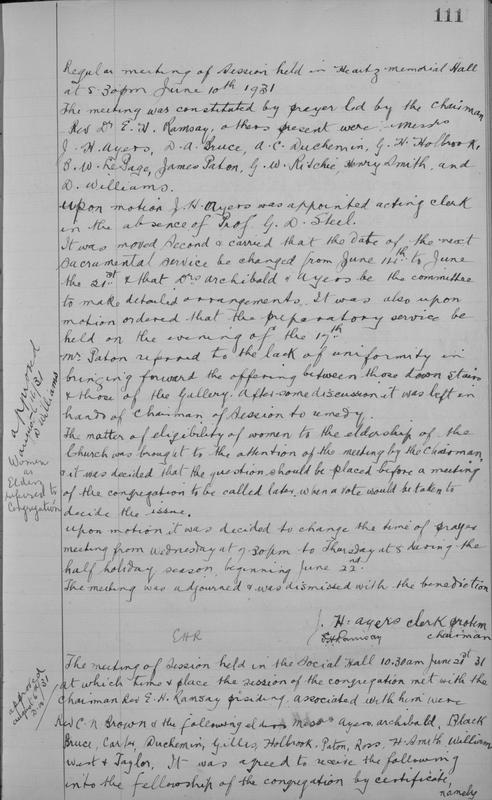 111
Regular meeting of Session held in Heartz memorial Hall
at 8.30 pm June 10th 1931
The meeting was constituted by prayer led by the Chairman
Rev Dr E. H. Ramsay, others present were Messrs
J. H. Ayers, D. A. Bruce, A. C. Duchemin, G. H. Holbrook,
B. W. LePage, James Paton, G. W. Ritchie, Henry Smith, and
D. Williams.
Upon motion J. H. Ayers was appointed acting clerk
in the absence of Prof. G. D. Steel.
It was moved Second & carried that the date of the next
sacramental service be changed from June 14th to June
the 21st & that Drs Archibald & Ayers be the committee
to make detailed arrangements. It was also upon
motion ordered that the preparatory service be
held on the evening of the 17th
Mr Paton referred to the lack of uniformity in
bringing forward the offering between those down stairs
& those of the Gallery. After some discussion it was left in
hands of Chairman of Session to remedy.
approved
D Williams
The matter of eligibility of women to the eldership of the
Church was brought to the attention of the meeting by the Chairman,
& it was decided that the question should be placed before a meeting
of the congregation to be called later, when a vote would be taken to
decide the issue.
Women
as
Elders
referred to
Congregation
Upon motion it was decided to change the time of prayer
meeting from Wednesday at 7.30 pm to Thursday at 8 during the
half holiday season, beginning June 22nd.
The meeting was adjourned & was dismissed with the benediction
J. H. Ayers clerk protem
EHR
E H Ramsay chairman
The meeting of Session held in the Social Hall 10.30 am June 21st 31
at which time & place the session of the congregation met with the
chairman Rev E. H. Ramsay presiding. associated with him were
approved
Rev C. N. Brown & the following elders Messrs Ayers, Archibald, Black
Bruce, Carter, Duchemin, Gillis, Holbrook, Paton, Ross, H. Smith, Williams
West & Taylor. It was agreed to receive the following
into the fellowship of the congregation by certificate,
namely